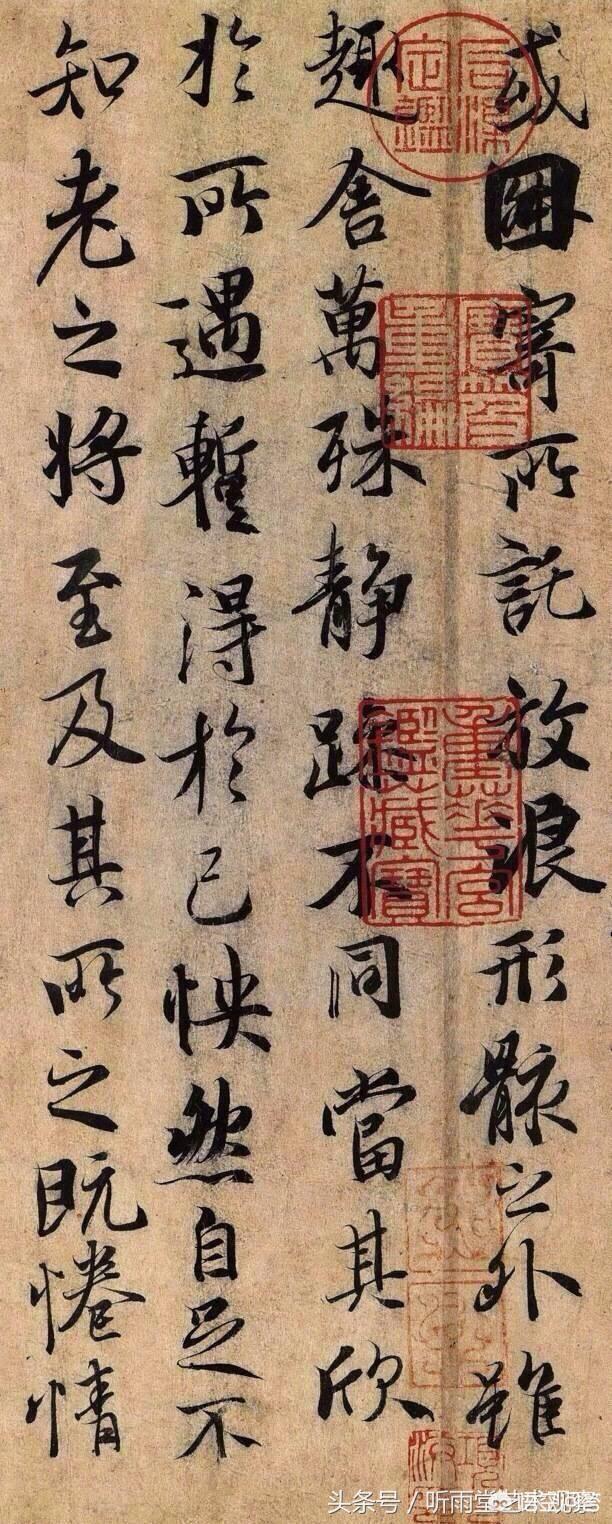 或因寄所託放浪形骸之外雖
趣舍萬殊静躁不同當其欣
於所遇暫得於己怏然自足不
知老之將至及其所之既惓情
石渠定鑑
寶笈重編
重華宮鑑藏寶
头条号／听雨堂艺术观察